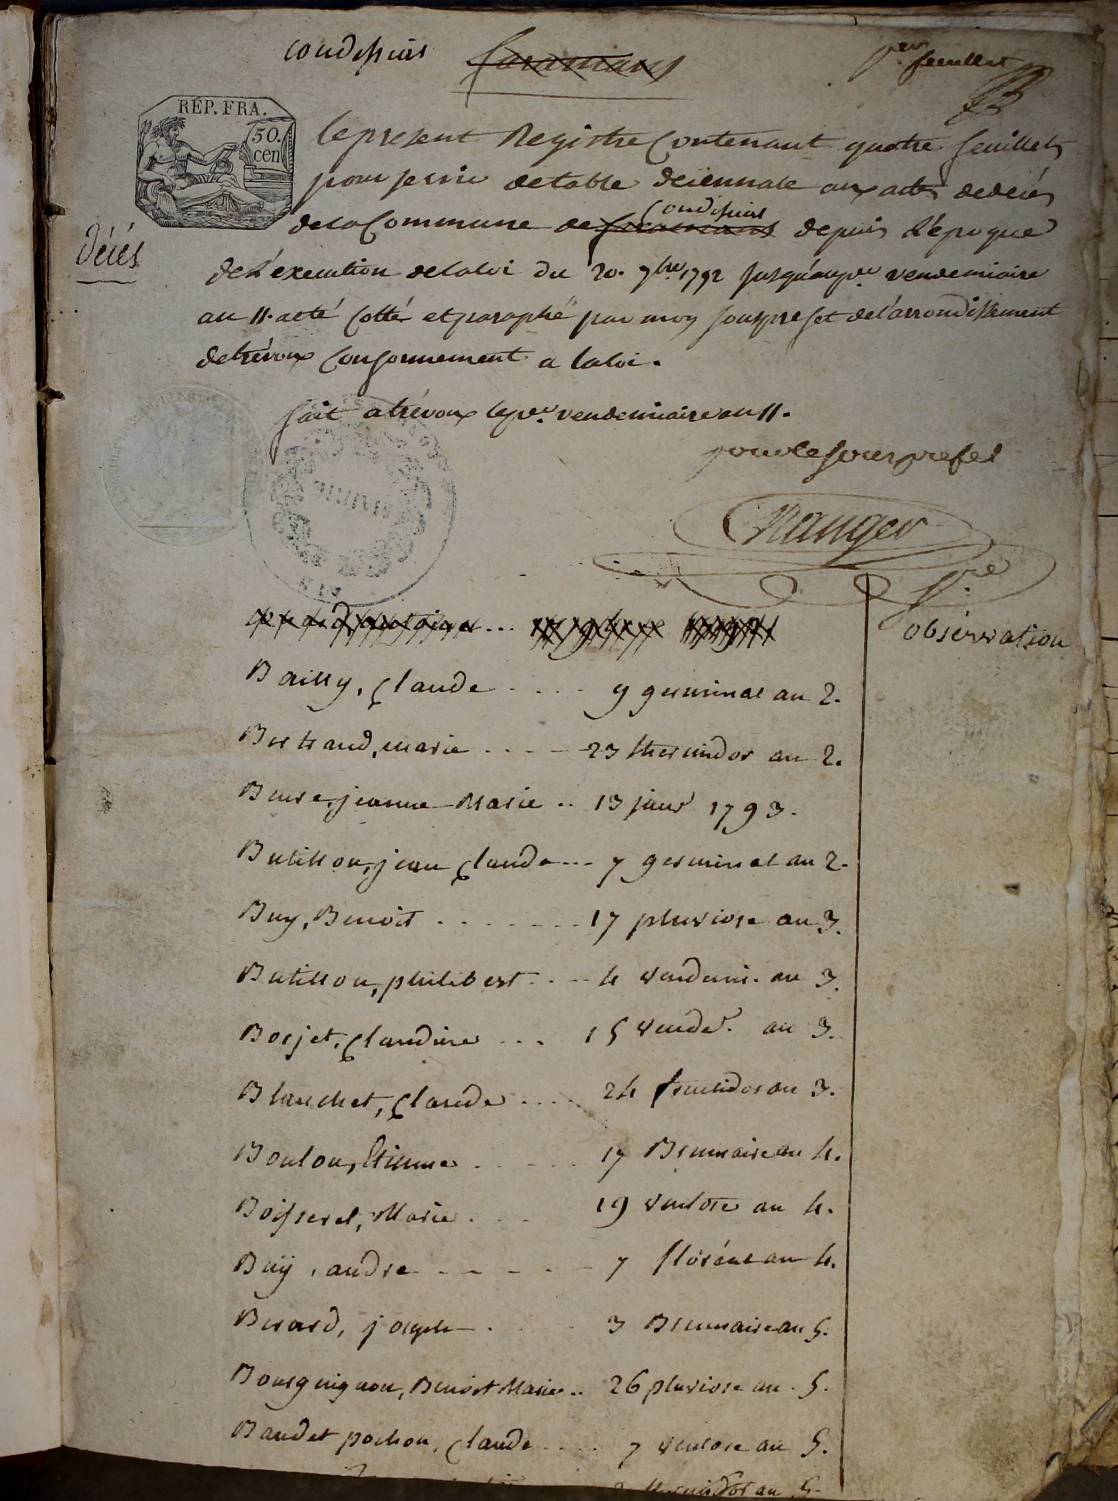 condeissiat
faramans
1er feuillet
RÉP. FRA.
50.
cen
Le present Registre Contenant quatre feuillets
pour servir de table decennale aux actes de décès
de la Commune de faramans condeissiat depuis L'époque
décès
de L'execution de la loi du 20. 7bre 1792 jusqu'au pr. vendemiaire
an 11. a été Cotté et paraphé par moy sous prefet de l'arrondissement
de trévoux Conformement a la loi.
fait a trévoux le pr. vendemiaire an 11.
pour le sous prefet
observation
Bailly, Claude .... 9 germinal an 2.
Bertrand, marie .... 23 thermidor an 2.
jeanne Marie .. 13 janvr 1793.
Butillon, jean Claude ... 7 germinal an 2.
Buy, Benoit ....... 17 pluviose an 3.
Butillon, philibert .... 4 vendemi. an 3.
Borjet, Claudine ... 15 vender. an 3.
Blanchet, Claude .... 24 fructidor an 3.
Boulon, Etienne ..... 17 Brumaire an 4.
Boisserel, Marie .... 19 ventose an 4.
Buÿ, andre ...... 7 floréal an 4.
Berard, joseph .... 3 Brumaire an 5.
Bourguignon, Benoit Marie .. 26 pluviose an. 5.
Baudet pochon, Claude .... 7 ventose an 5.
an 5.